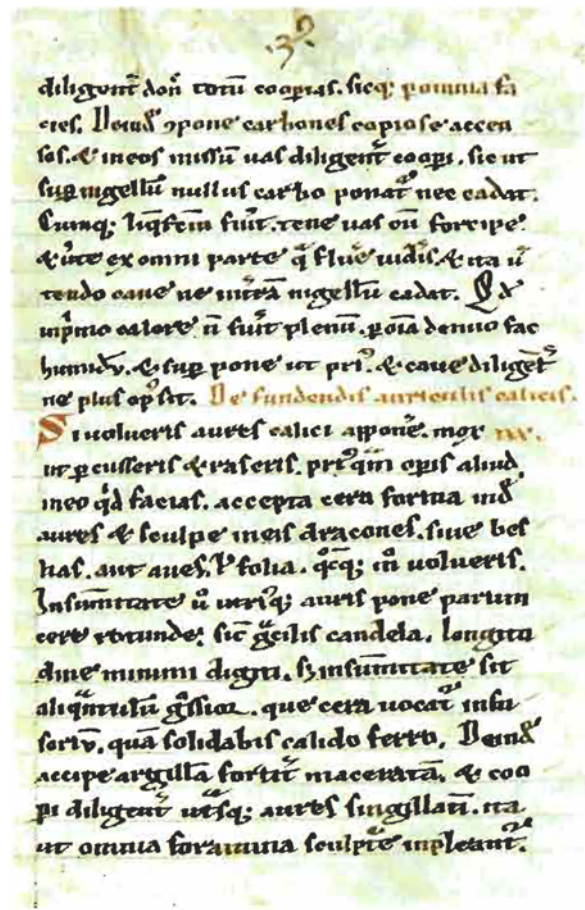 .39.
diligent̃ don̄ totū coopias. sicq; p omnia fa
cies. Deinđ ɔpone carbones copiose accen
sos. & in eos missū uas diligent̃ coopi. sic ut
sup nigellū nullus carbo ponat̃ nec cadat.
Cumq; liq̄fctm̄ fuit̃. tene uas cū forcipe.
& ũte ex omni parte q̃ fluẽ uidis̃. & ita ũ
tendo caue ne int̃rā nigellū cadat. Qđ si
inp̃mo calore ñ fuit̃ plenū. p oīa denuo fac
humidū. & sup pone ut pri᷒. & caue diligent̃
ne plus op᷒ sit. De fundendis auriculis calicis.
Si uolueris aures calici apponẽ. mox xxx.
ut pcusseris & raseris. pri᷒q̄m opis aliud
in eo qđ facias. accepta cera forma inđ
aures & sculpe in eis dracones. siue bes
tias. aut aues. ł folia. q̊cq; m̊ uolueris.
In sūmitate ũ utri᷒q; auris pone parum
cere rotunde. sic̃ gͣcilis candela. longitu
dine minimi digiti. sʒ insūmitate sit
aliqͣntulū gͦssior. que cera uocat̃ infu
soriū. quā solidabis calido ferro. Deinđ
accipe argillā fortit̃ maceratā. & coo
pi diligent̃ ut̃sq; aures singillatī. ita
ut omnia foramina sculptẽ inpleant̃.